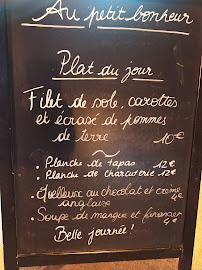 Au petit bonheur
Plat du jour
Filet de sole, carottes
et écrasé de pommes
de terre 10€
. Planche de tapas 12€
. Planche de charcuterie 12€
. Moelleux au chocolat et crème
anglaise 4€
. Soupe de mangue et
4€
Belle journée!